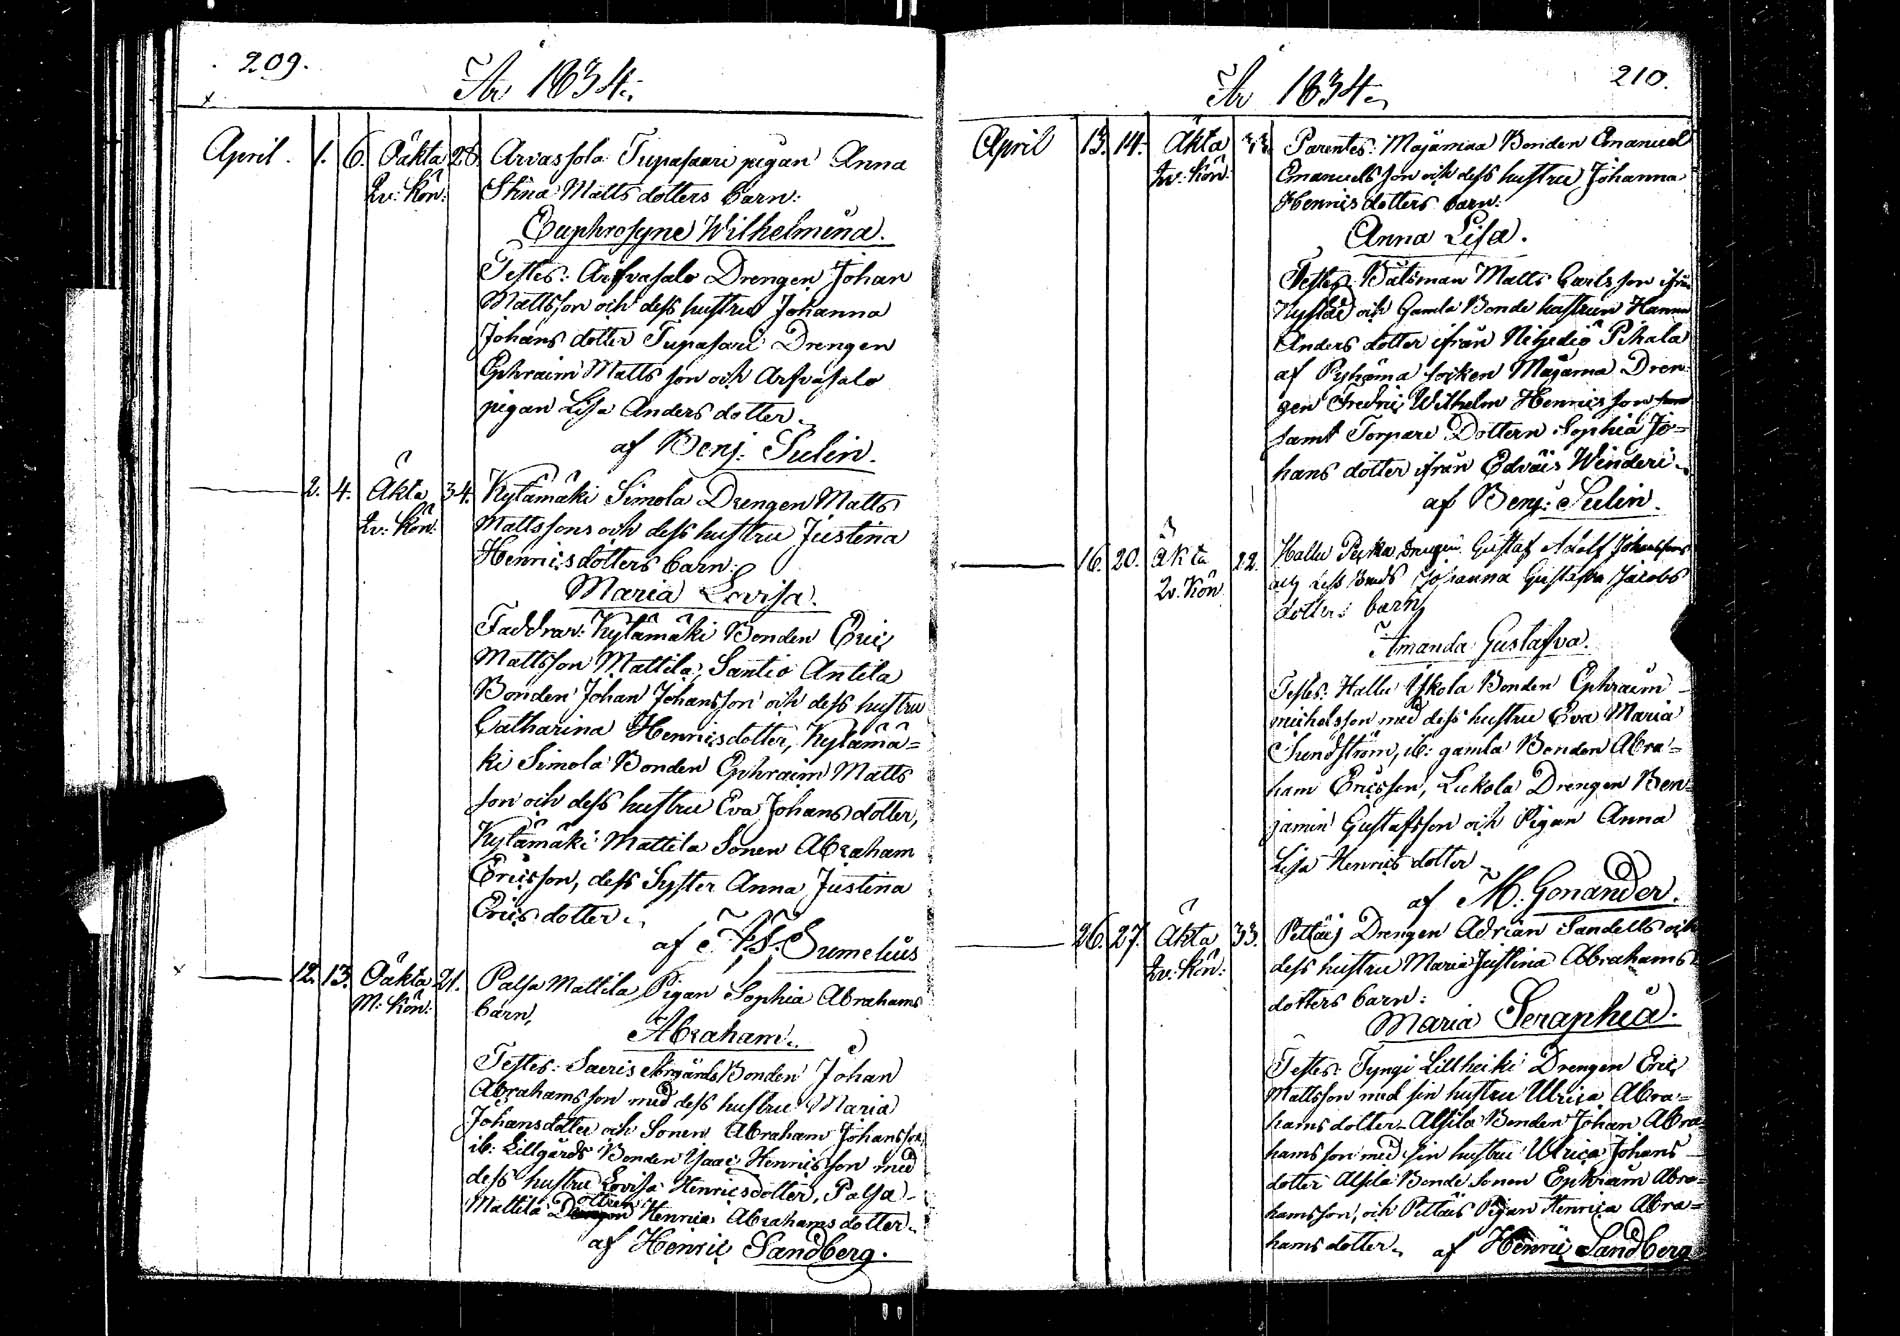 209.
År 1834.
April. 1. 6. Oäkta 28. Arvassola Tupasaari pigan Anna
Qv: Kön: Stina Matts dotters barn:
Euphrosyne Wilhelmina.
Testes: Arfvasalo Drengen Johan
Mattsson och dess hustru Johanna
Johans dotter Tupasari Drengen
Ephraim Matts son och Arfvasalo
pigan Lisa Anders dotter.
af Benj: Sulin.
2. 4. Äkta 34. Kylämäki Simola Drengen Matts
Qv: Kön: Mattssons och dess hustru Justina
Henricsdotters barn:
Maria Lovisa.
Faddrar: Kylämäki Bonden Eric
Mattsson Mattila, Santio Antila
Bonden Johan Johansson och dess hustru
Catharina Henricsdotter, Kylämä=
ki Simola Bonden Ephraim Matts
son och dess hustru Eva Johans dotter,
Kylämäki Mattila Sonen Abraham
Ericsson, dess Syster Anna Justina
Erics dotter.
af Sumelius
12. 13. Oäkta 21. Palsa Mattila Pigan Sophia Abrahams
M: Kön: barn,
Abraham.
Testes: Saeris Storgårds Bonden Johan
Abrahamsson med dess hustru Maria
Johansdotter och Sonen Abraham Johansson
ib: Lillgårds Bonden Isaac Henricsson med
dess hustru Lovisa Henricsdotter, Palsa
Mattila Dottren Henrica Abrahams dotter.
af Henric Sandberg.
210.
År 1834.
April 13. 14. Äkta 33. Parentes: Majamaa Bonden Emanuel
Qv: Kön: Emanuels son och dess hustru Johanna
Henrics dotters barn:
Anna Lisa.
Testes: Båtsman Matts Carlsson ifrån
Nystad och Gamla Bonde hustrun Hanna
Anders dotter ifrån Pihala
af Pyhäma socken Majama Dren=
gen Fredric Wilhelm Henricsson
samt Torpare Dottern Sophia Jo=
hans dotter ifrån Edväis Winderi.
af Benj: Sulin.
16. 20. äkta 22. Hallu Drengen Gustaf Adolf Johanssons
Qv. Kön Johanna Gustafva Jacobs
dotters barn
Amanda Gustafva.
Testes: Hallu Yskola Bonden Ephraim
michelsson med dess hustru Eva Maria
Sundström, ib: gamla Bonden Abra=
ham Ericsson, Lukola Drengen Ben=
jamin Gustafsson och Pigan Anna
Lisa Henrics dotter
af M. Gonander.
26. 27. Äkta 33. Pettäis Drengen Adrian Sandells och
Qv: Kön: dess hustru Maria Justina Abrahams
dotters barn:
Maria Seraphia.
Testes: Tyngi Lillheiki Drengen Eric
Mattsson med sin hustru Ulrica Abra=
hams dotter Alsila Bonden Johan Abra
hamsson med sin hustru Ulrica Johans
dotter Alsila Bonde Sonen Ephraim Abra=
hamsson, och Pettäis Pigan Henrica Abra=
hams dotter. af Henric Sandberg